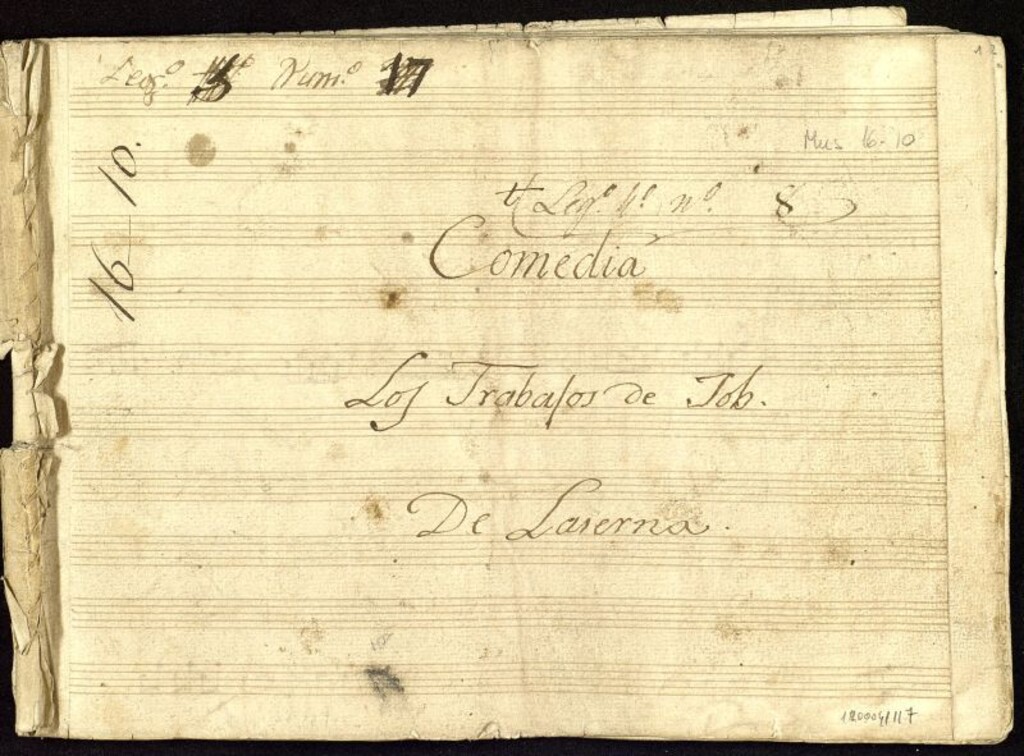 Leg.º 3 Num.º 17
16-10.
Mus 16-10
Leg.º 4º nº. 8
Comedia
Los Trabajos de Job.
De Laserna.
1200041117